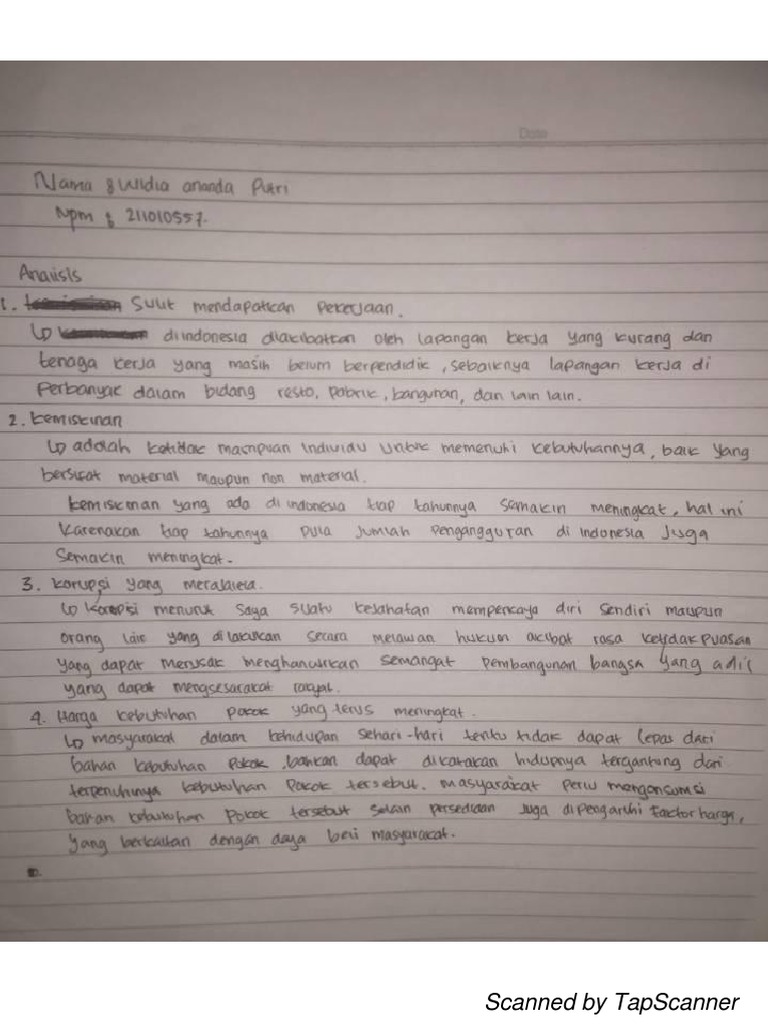 Date
Nama : Widia ananda Putri
Npm : 211010557.
Analisis
1. Sulit mendapatkan Pekerjaan.
↳ diindonesia diakibatkan oleh lapangan kerja yang kurang dan
tenaga kerja yang masih belum berpendidik, sebaiknya lapangan kerja di
Perbanyak dalam bidang resto, pabrik, bangunan, dan lain lain.
2. kemiskinan
↳ adalah ketidak mampuan individu untuk memenuhi kebutuhannya, baik yang
bersifat material maupun non material.
kemiskinan yang ada di indonesia tiap tahunnya semakin meningkat, hal ini
karenakan tiap tahunnya pula jumlah pengangguran di indonesia juga
Semakin meningkat.
3. korupsi yang merajalela.
↳ korupsi menurut saya suatu kejahatan memperkaya diri sendiri maupun
orang lain yang di lakukan secara melawan hukum akibat rasa
yang dapat merusak menghancurkan semangat pembangunan bangsa yang adil
yang dapat rakyat.
4. Harga kebutuhan pokok yang terus meningkat.
↳ masyarakat dalam kehidupan sehari-hari tentu tidak dapat lepas dari
bahan kebutuhan pokok, bahkan dapat dikatakan hidupnya tergantung dari
terpenuhinya kebutuhan pokok tersebut. masyarakat perlu mengonsumsi
bahan kebutuhan pokok tersebut selain persediaan juga dipengaruhi factor harga,
yang berkaitan dengan daya beli masyarakat.
Scanned by TapScanner